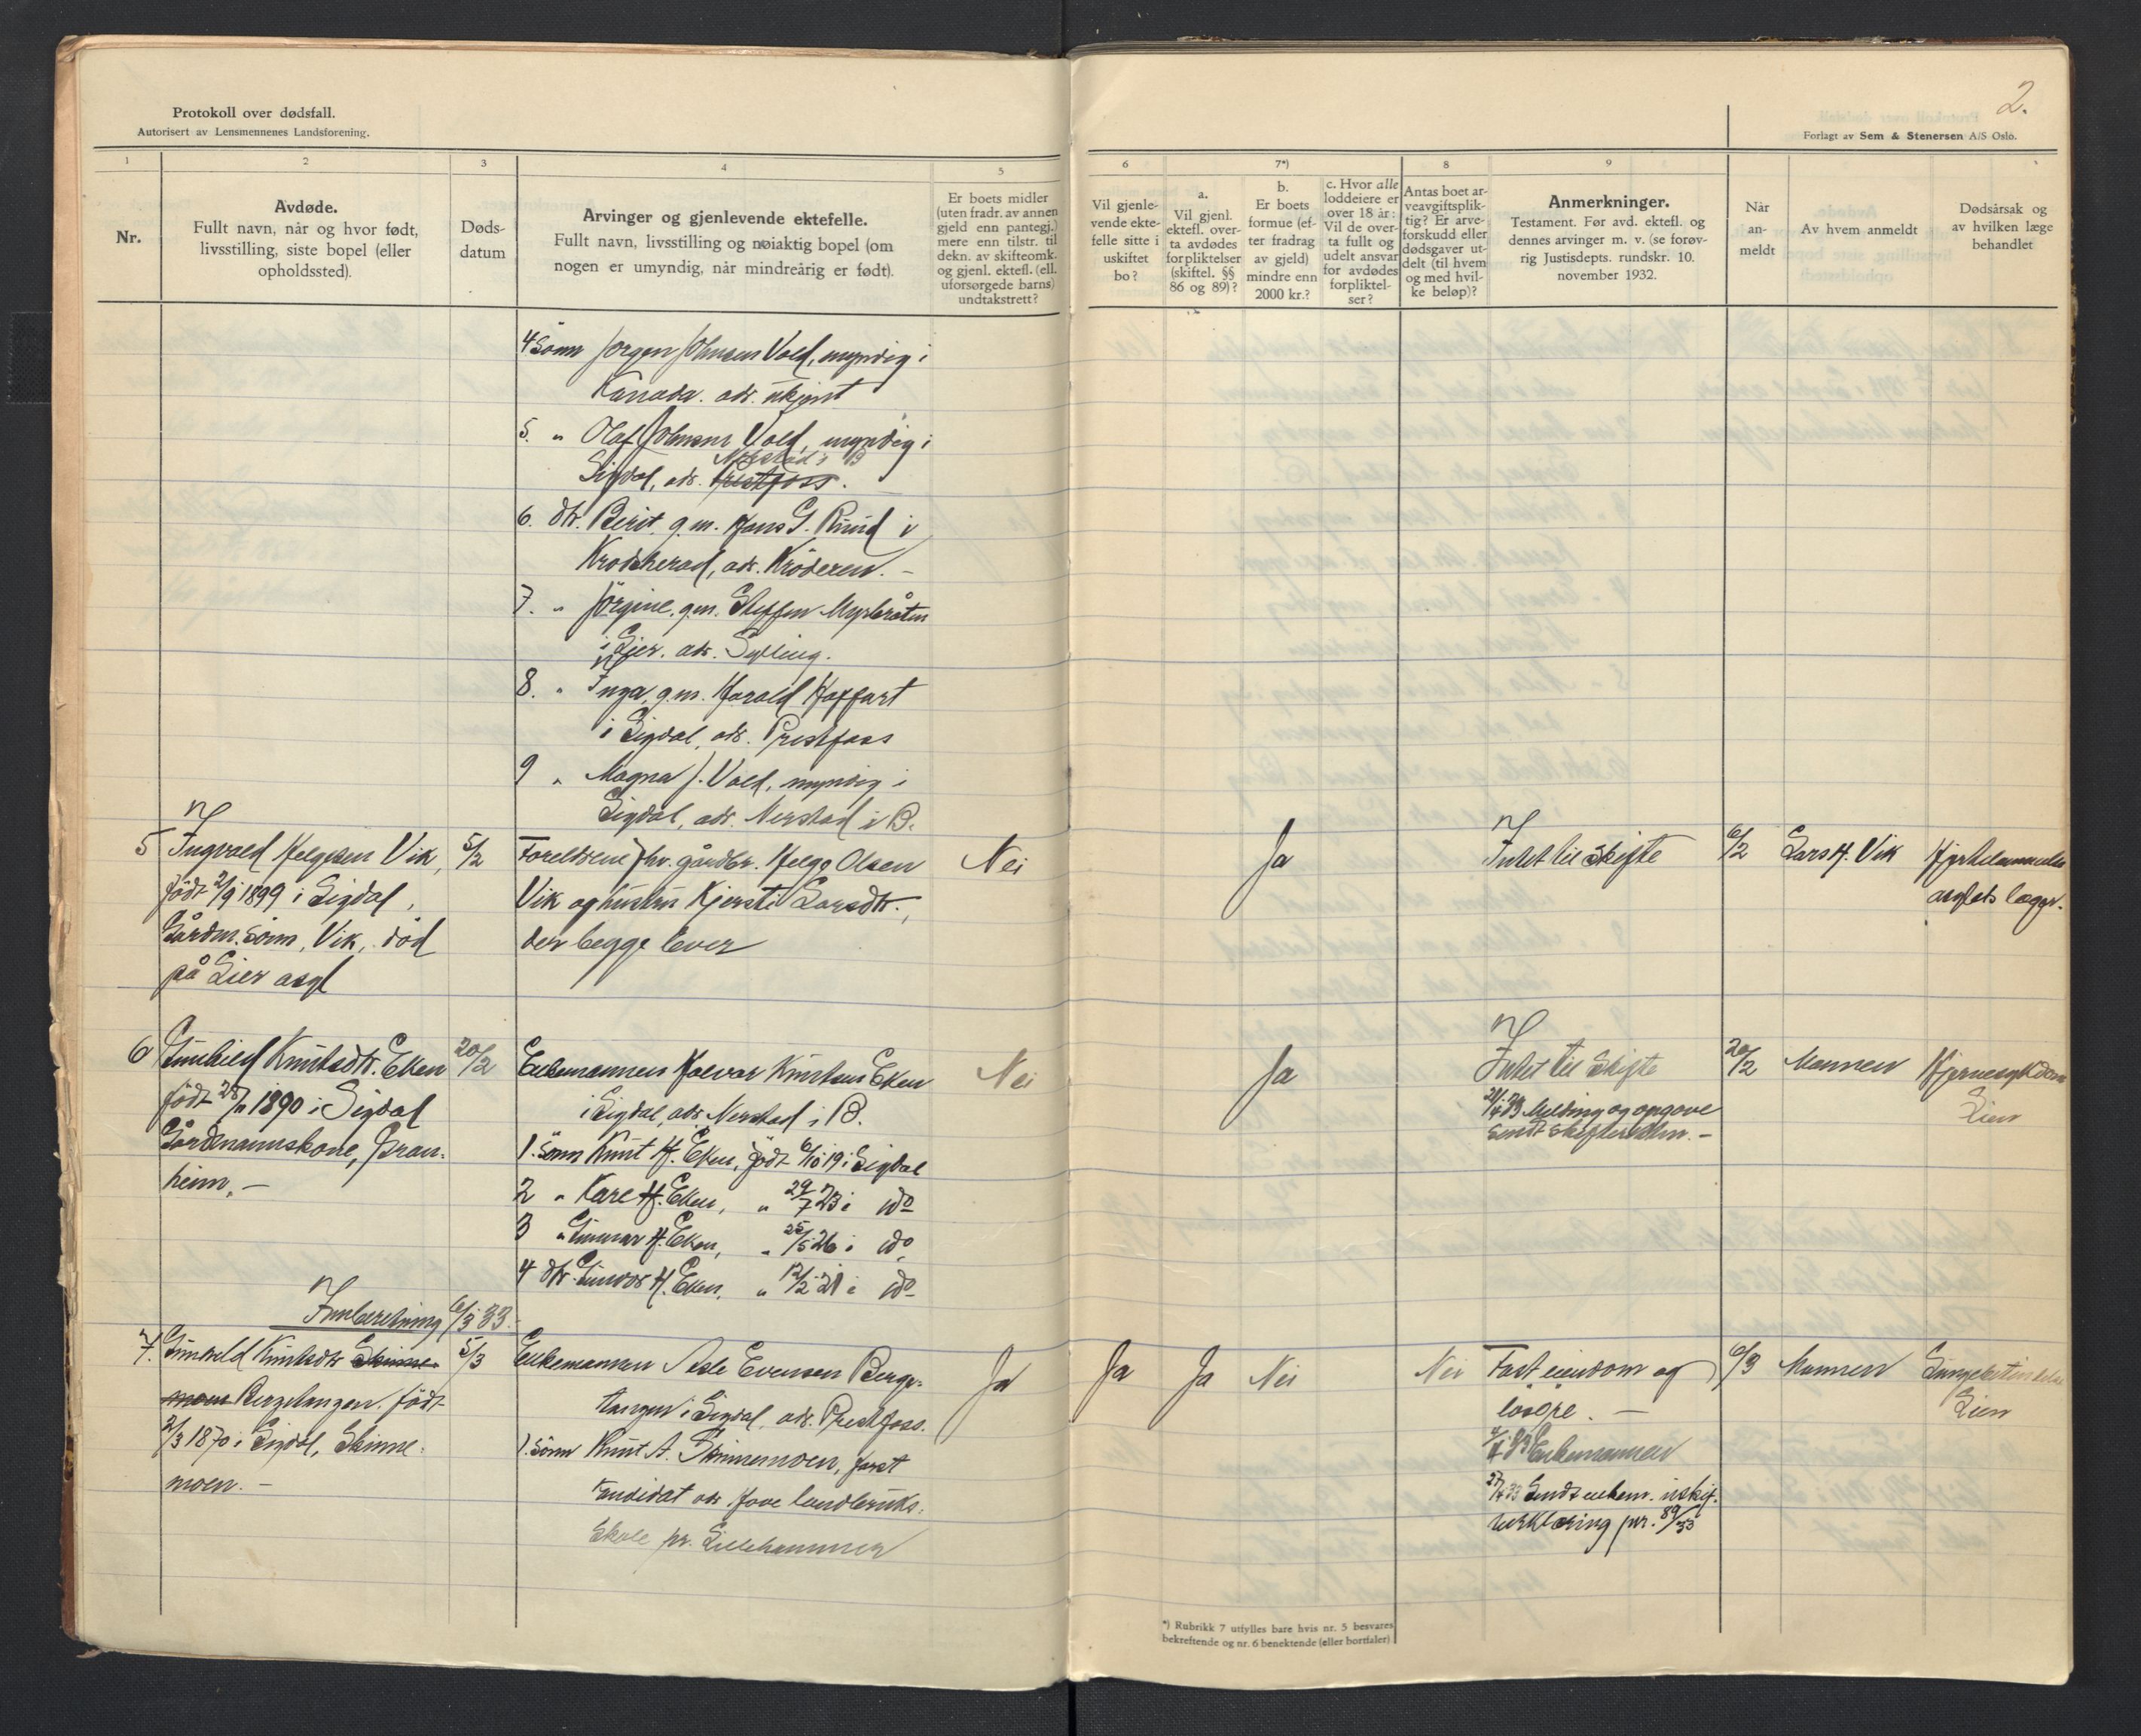 Protokoll over dødsfall.
Autorisert av Lensmennenes Landsforening.
1
2
3
4
5
Nr.
Avdøde.
Fullt navn, når og hvor født,
livsstilling, siste bopel (eller
opholdssted).
Døds-
datum
Arvinger og gjenlevende ektefelle.
Fullt navn, livsstilling og nøiaktig bopel (om
nogen er umyndig, når mindreårig er født).
Er boets midler
(uten fradr. av annen
gjeld enn pantegj.)
mere enn tilstr. til
dekn. av skifteomk.
og gjenl. ektefl. (ell.
uforsørgede barns)
undtakstrett?
4 Sønn Jørgen Johnsen Vold, myndig i
Kanada. adr. ukjent
5. " Olaf Johnsen Vold, myndig i
Nerstad i B
Sigdal, adr. Prestfoss.
6. Dtr. Berit g.m. Hans G. Ruud i
Krødsherad, adr. Krøderen. -
7. " Jørgine, g.m. Steffen Myrbråten
i Lier. adr. Sylling.
8. " Inga, g.m. Harald Hoffart
i Sigdal, adr. Prestfoss
9 " Magna J. Vold, myndig i
Sigdal, adr. Nerstad i B.
5 Ingvald Helgesen Vik,
født 2/9 1899 i Sigdal,
Gårdm. sønn, Vik, død
på Lier asyl
5/2
Foreldrene fhv. gårdbr. Helge Olsen
Vik og hustru Kjersti Larsdtr.,
der begge lever
Nei
6 Gunhild Knutsdtr. Eken
født 28/11 1890 i Sigdal
Gårdmannskone, Gran-
heim. -
20/2
Enkemannen Halvor Knutsen Eken
i Sigdal, adr. Nerstad i B.
1. Sønn Knut H. Eken, født 6/10 19 i Sigdal
2 " Kare H. Eken, " 29/7 23 i do
3 " Gunnar H. Eken, " 25/5 26 i do
4 dtr. Gunvor H. Eken, " 12/2 21 i do
Nei
Innberetning 6/3 33.-
7. Gunhild Knutsdtr Skinne-
moen Bergetangen. født
2/3 1870 i Sigdal, Skinne-
moen. -
5/3
Enkemannen Asle Evensen Berge-
tangen i Sigdal, adr. Prestfoss.
1. Sønn Knut A. Skinnemoen, forst
kandidat adr Jove landbruks-
skole pr. Lillehammer
Ja
2.
Forlagt av Sem & Stenersen A/S Oslo.
6
7*)
8
9
Vil gjenle-
vende ekte-
felle sitte i
uskiftet
bo?
a.
Vil gjenl.
ektefl. over-
ta avdødes
forpliktelser
(skiftel. §§
86 og 89)?
b.
Er boets
formue (ef-
ter fradrag
av gjeld)
mindre enn
2000 kr.?
c. Hvor alle
loddeiere er
over 18 år:
Vil de over-
ta fullt og
udelt ansvar
for avdødes
forpliktel-
ser?
Antas boet ar-
veavgiftsplik-
tig? Er arve-
forskudd eller
dødsgaver ut-
delt (til hvem
og med hvil-
ke beløp)?
Anmerkninger.
Testament. Før avd. ektefl. og
dennes arvinger m. v. (se forøv-
rig Justisdepts. rundskr. 10.
november 1932.
Når
an-
meldt
Av hvem anmeldt
Dødsårsak og
av hvilken læge
behandlet
Ja
Intet til skifte
6/2
Lars H. Vik
asylets læge.
Ja
Intet til skifte
Melding og opgave
20/2
Mannen
Hjernesykdom
Lien
Ja
Ja
Nei
Nei
Fast eiendom og
løsøre. -
Enkemannen
27/4 33 Sendt enkem. uskif-
teerklæring jnr. 89/33
6/3
Mannen
Lungebetendelse
Lien
*) Rubrikk 7 utfylles bare hvis nr. 5 besvares
bekreftende og nr. 6 benektende (eller bortfaler)